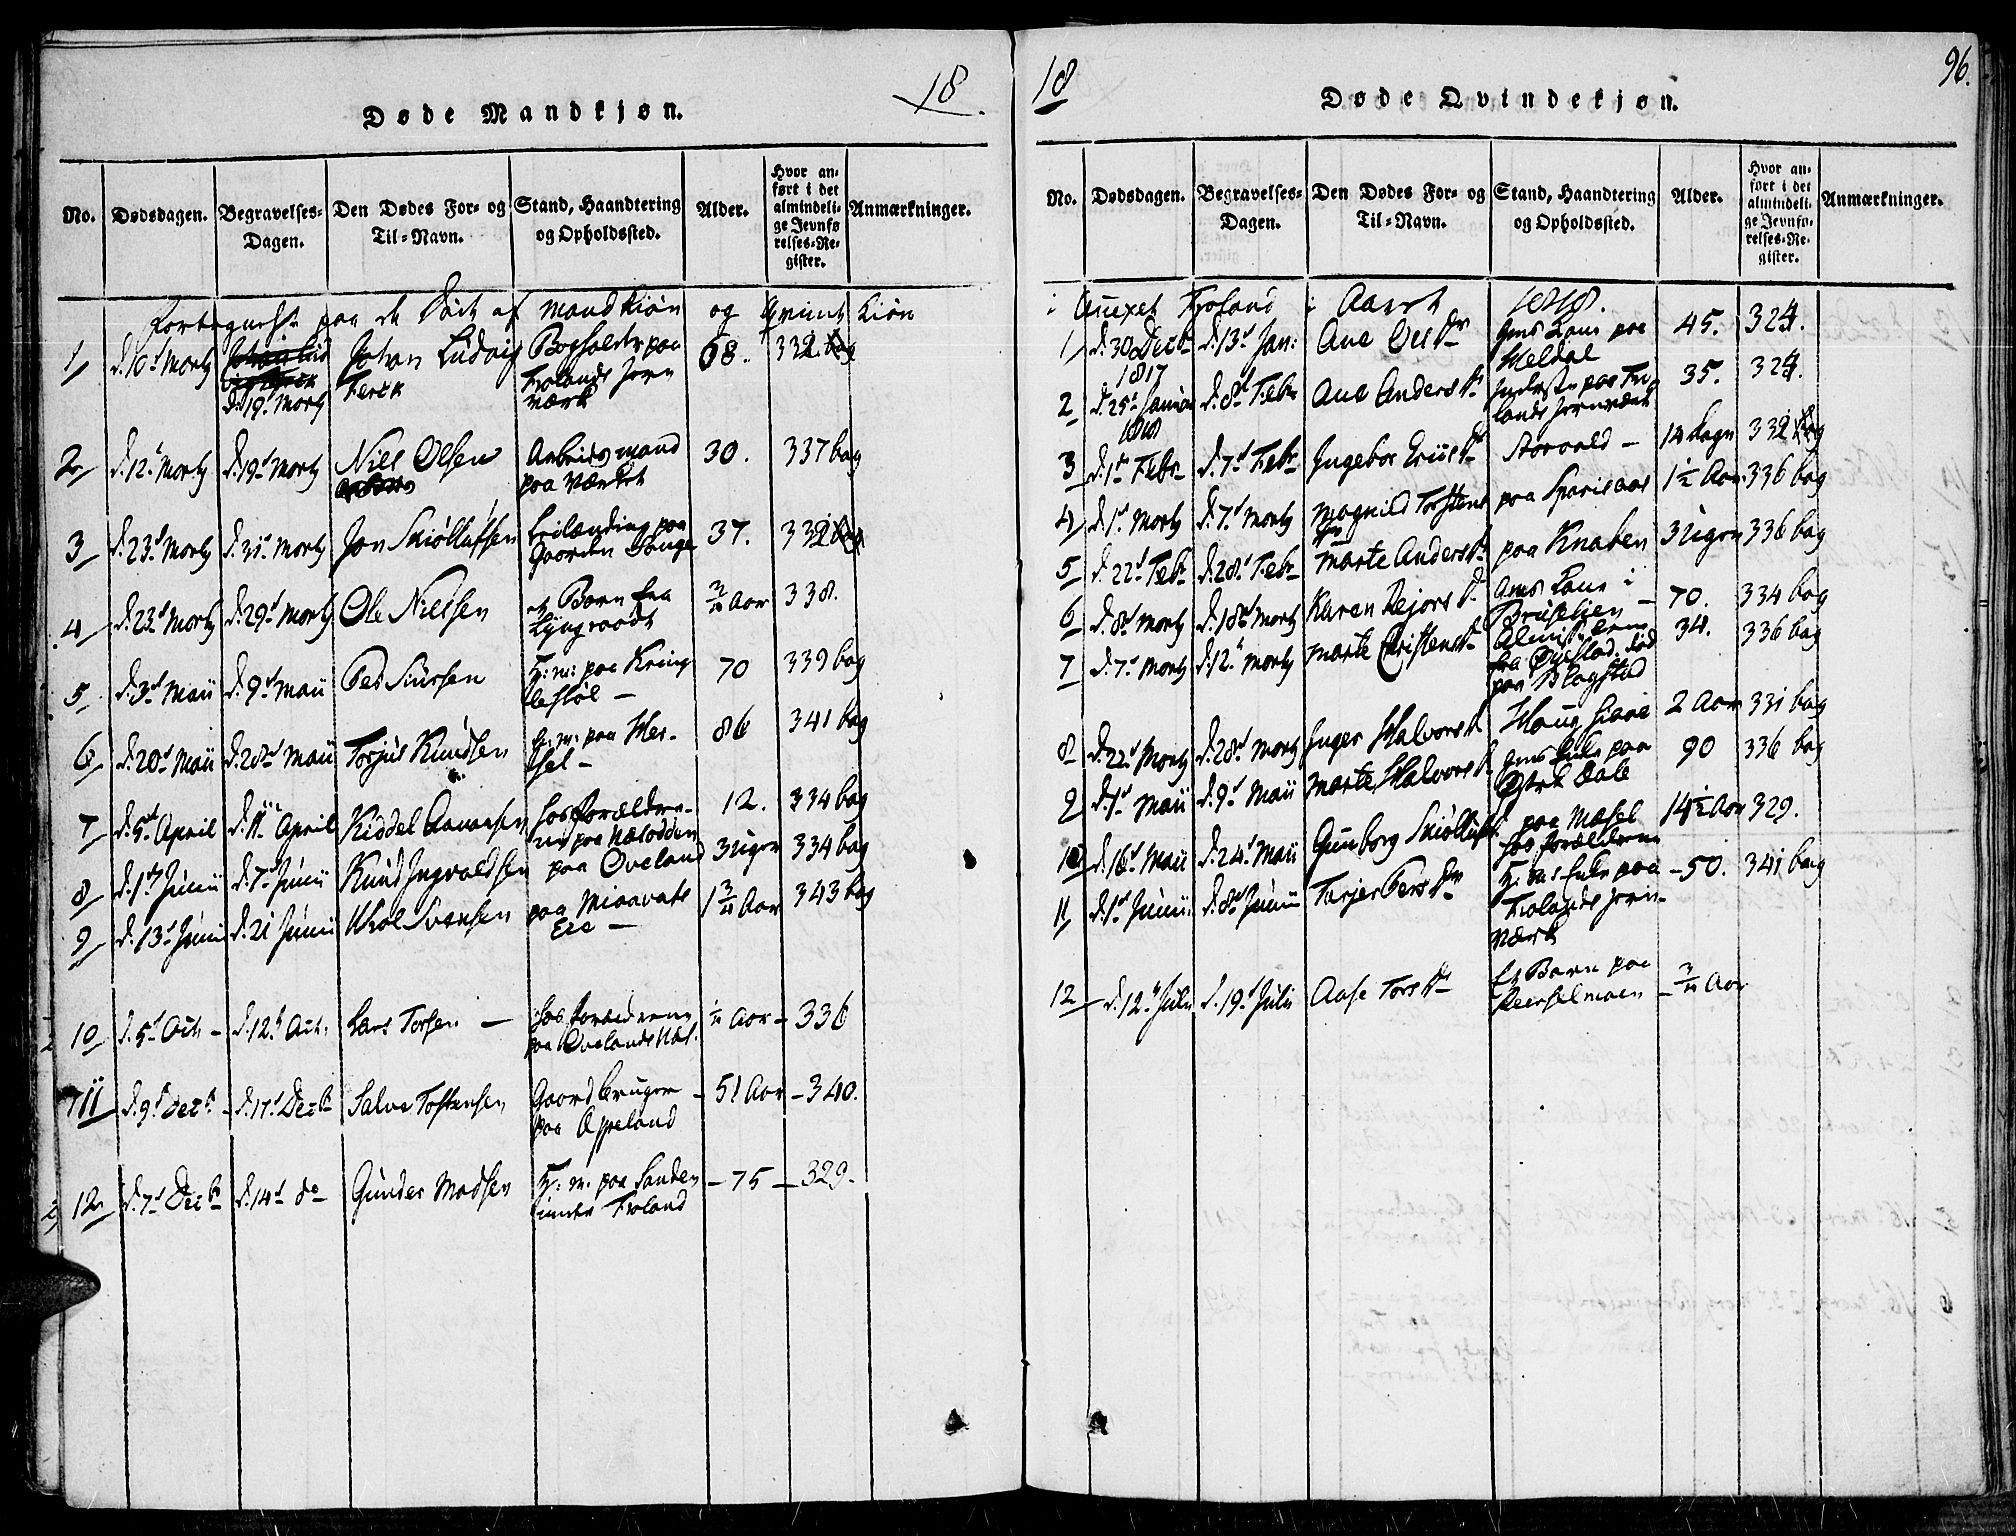 18.
Døde Mandkjøn.
No. Dødsdagen. Begravelses-Dagen. Den Dødes For- og Til-Navn. Stand, Haandtering og Opholdssted. Alder. Hvor anført i det almindelige Jevnførelses-Register. Anmærkninger.
Fortegnelse paa de Døde af Mandkiøn og Qvinde Kiøn
1 d. 10d Martz d. 19d Martz Johan Ludvig Ferck Bogholder paa Frolands Jern Værk 68. 332. bag
2 d. 12d Martz d. 19d Martz Niels Olsen Arbeidsmand paa Værket 30. 337 bag
3 d. 23d Martz d. 31d Martz Jon Skiøllufsen Leilænding paa Gaarden Songe 37. 332 bag
4 d. 23d Martz d. 29d Martz Ole Nielsen et Barn fra Lyngraadt Aar 338.
5 d. 3d Maii d. 9d Maii Ped Siursen H: m: paa Kringlestøl — 70 339 bag
6 d. 20d Maii d. 28d Maii Torjus Knudsen h: m: paa Messel — 86 341 bag
7 d. 5d April d. 11t April Kiddel Aanonsen hos forældrene paa Næsodden 12. 334 bag
8 d. 1d Junii d. 7d Junii Knud Ingvaldsen paa Oveland 3 uger 334 bag
9 d. 13d Junii d. 21 Junii Svensen paa Mioavats Eie — Aar 343 bag
10 d. 5d Oct. – d. 12t Oct. Lars Torsen — hos forældrene paa Ovelands Næs. Aar – 336
11 d. 9d Dezbr – d. 17d Dezbr Salve Tostensen Gaardbruger paa Appeland – 51 Aar – 340.
12 d. 7d Dezbr d. 14d do Gunder Madsen H: m. paa Sanden under Froland – 75 – 329.
18
96.
Døde Qvindekjøn.
No. Dødsdagen. Begravelses-Dagen. Den Dødes For- og Til-Navn. Stand, Haandtering og Opholdssted. Alder. Hvor anført i det almindelige Jevnførelses-Register. Anmærkninger.
i Annexet Froland i Aaret 1818.
1 d. 30 Dezbr 1817 d. 13d Jan: Ane Olsdr Gms Kone paa Meldal 45. 324.
2 d. 25d Januar 1818 d. 8d Febr Ane Andersdr Inderste paa Frolands Jernværk 35. 324.
3 d. 1d Febr d. 7d Febr Ingebor Eriisdr Storvald — 14 dage 332 bag
4 d. 1d Martz d. 7d Martz Magnild Torstensdr paa Sparisaas 1½ Aar. 336 bag
5 d. 22d Febr d. 28d Febr Marte Andersdr paa Knaben 3 Uger 336 bag
6 d. 8d Martz d. 18d Martz Karen Rejorsdr Gms Kone i — 70. 334 bag
7 d. 7d Martz d. 12t Martz Marte Christensdr Almisselem fra Øiestad. død paa Blagstad 34. 336 bag
8 d. 22d Martz d. 28d Martz Inger Halvorsdr Haug 2 Aar 331 bag
9 d. 1d Maii d. 9d Maii Marte Halvorsdr gms Enke paa Østre Dale 90 336 bag
10 d. 16d Maii d. 24d Maii Gunborg Skiøllufsdr paa Mæsel hos forældrene 14½ Aar 329.
11 d. 1d Junii d. 8d Junii Torjer Persdr H: ms Enke paa Frolands Jernværk – 50. 341 bag
12 d. 12t Julii d. 19d Julii Aase Torsdr Et Barn paa – Aar